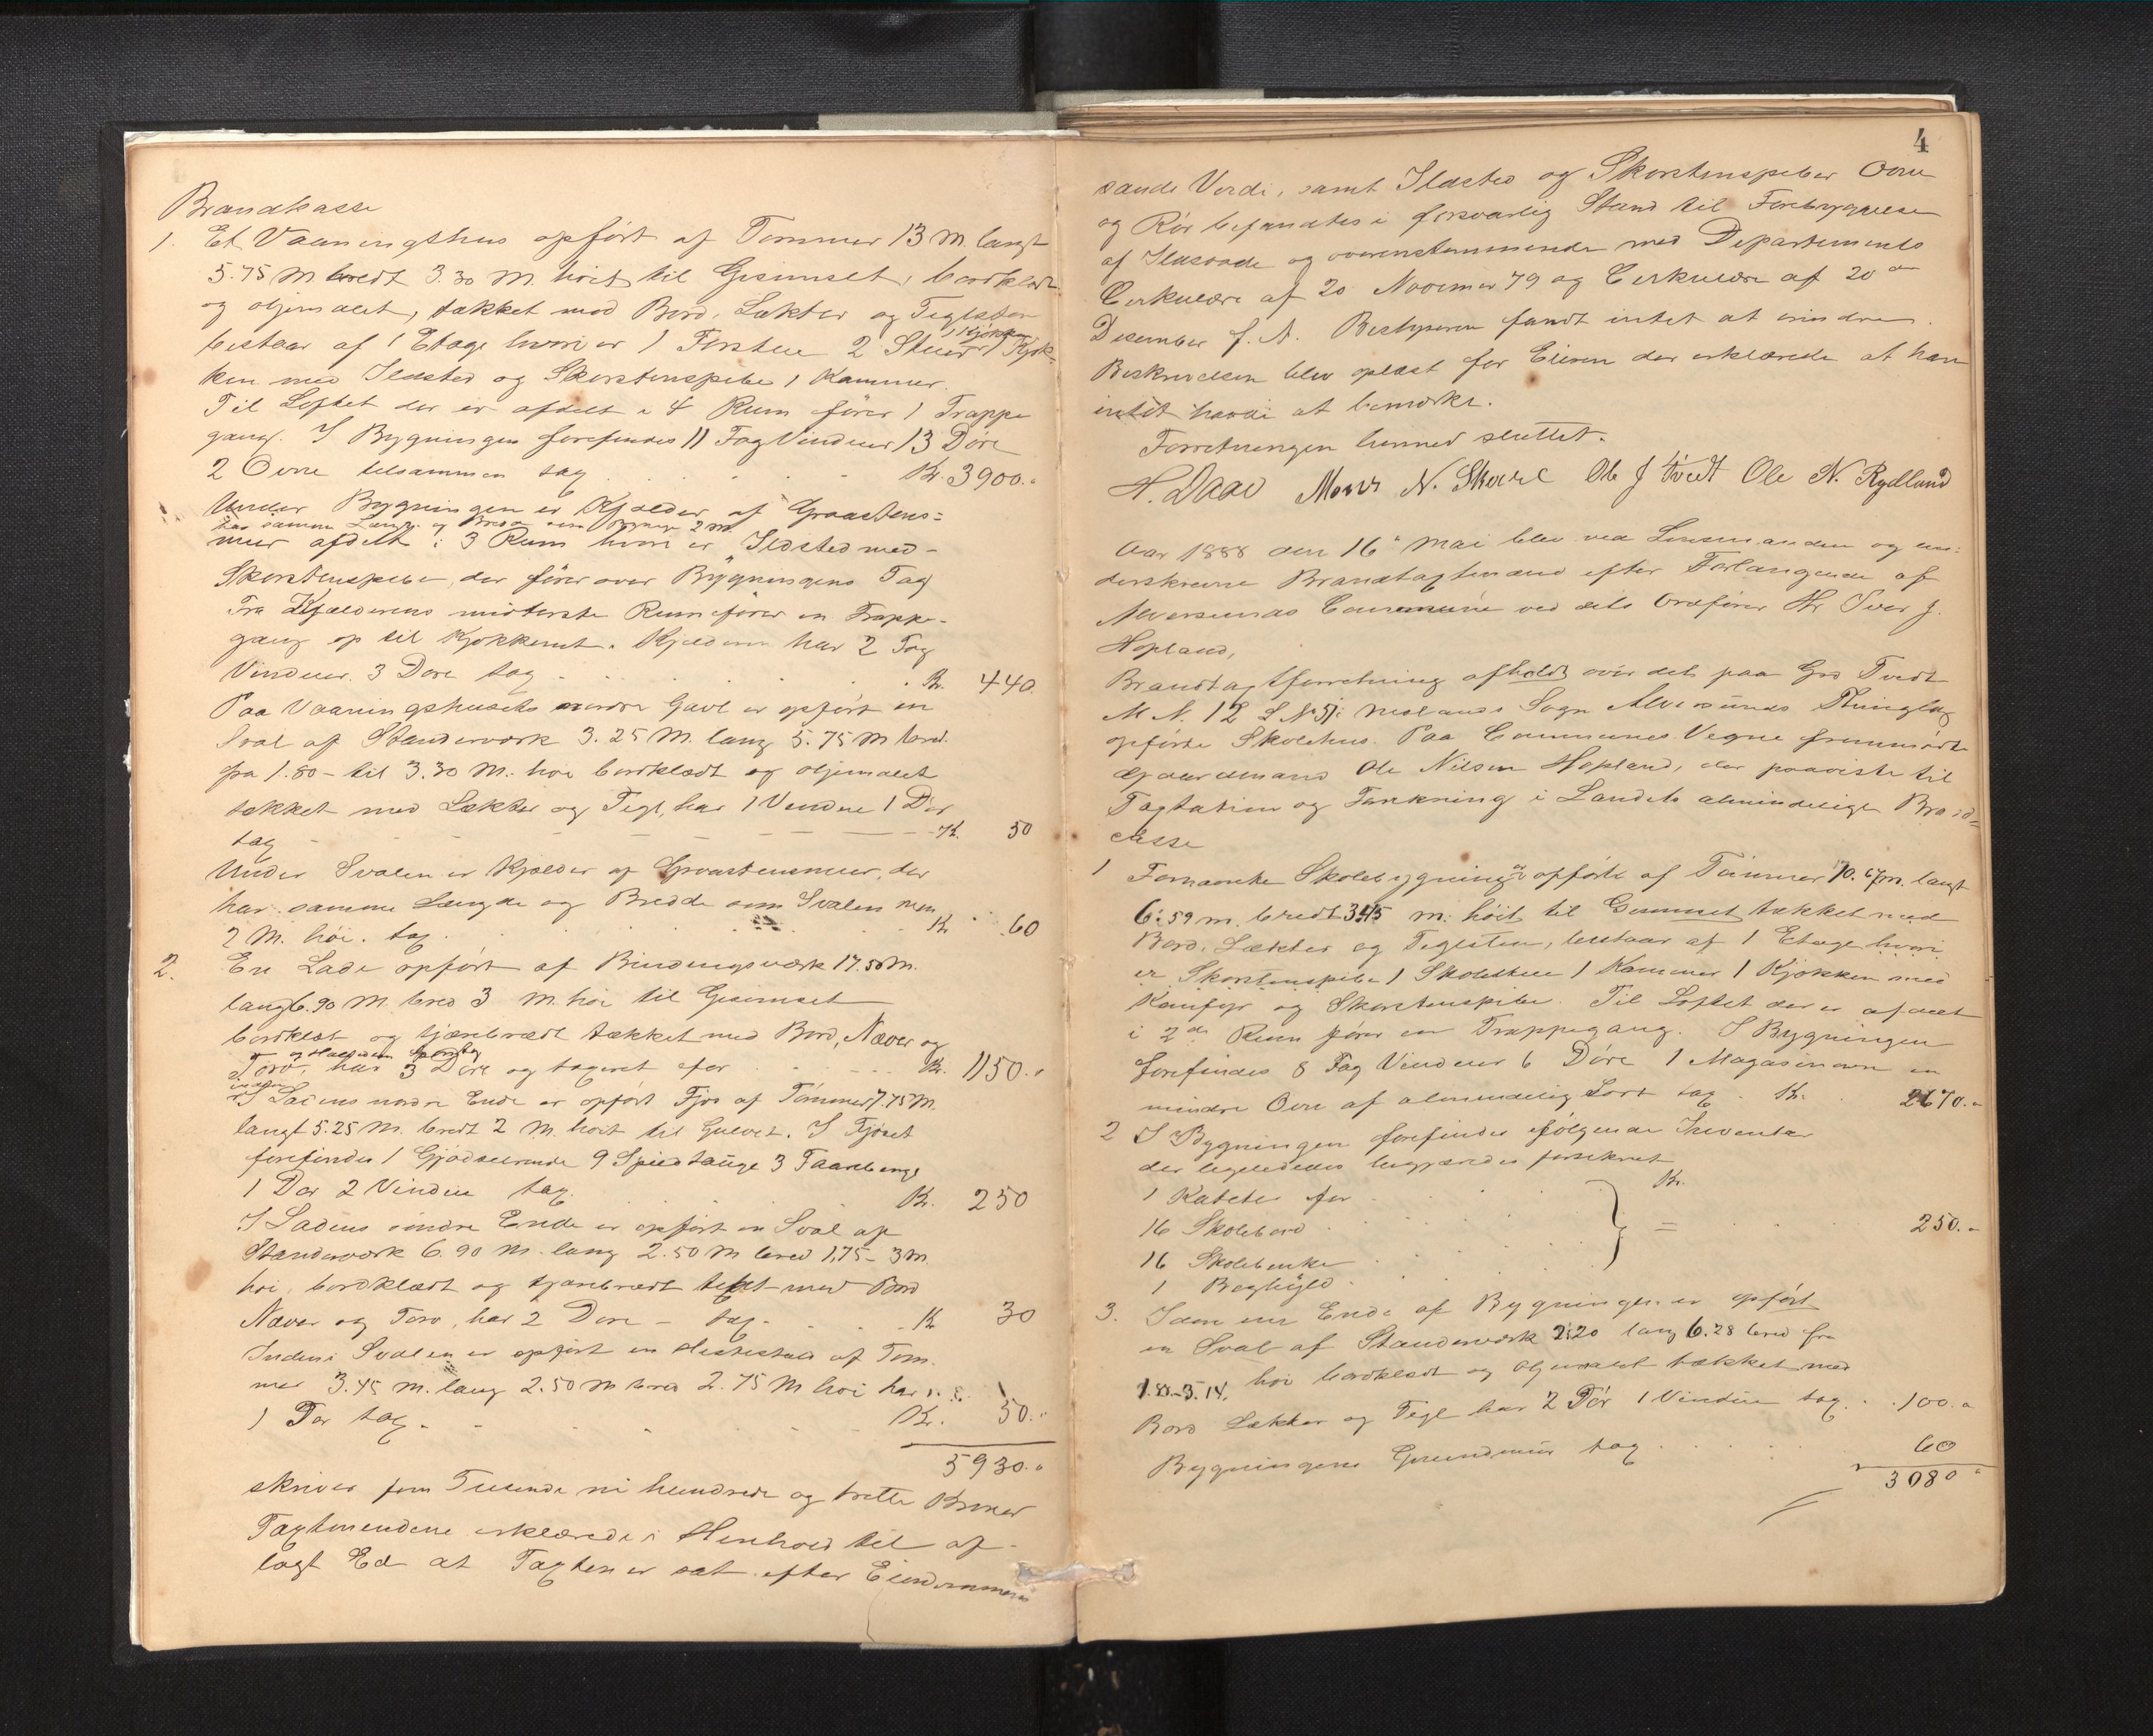 Brandkasse
1. Et Vaaningshus opført af Tømmer 13 M. langt
5.75 M bredt 3.30 M. høit til Gesimset, bordklædt
og oljemalet, tækket med Bord, Lækter og Teglsten
bestaar af 1 Etage hvori er 1 Forstue 2 Stuer 1 Kjøk-
ken med Ildsted og Skorstenspibe 1 Kammer.
Til Loftet der er afdelt i 4 Rum fører 1 Trappe
gang. I Bygningen forefindes 11 Fag Vinduer 13 Døre
2 Ovne tilsammen tag. Kr. 3900.
Under Bygningen er Kjælder af Graastens=
har samme Længde og Bredde som Bygningen 2 M.
muur afdelt i 3 Rum hvori er Ildsted med
Skorstenspibe, der fører over Bygningens Tag
Fra Kjælderens midterste Rum fører en Trappe-
gang op til Kjøkkenet. Kjælderen har 2 Fag
Vinduer 3 Døre tag. Kr. 440.
Paa Vaaningshusets nordre Gavl er opført en
Sval af Standerværk 3.25 M. lang 5.75 M bred
fra 1.80 - til 3.30 M. høi bordklædt og oljemalet
tækket med Lækter og Tegl, har 1 Vindue 1 Dør
tag Kr. 50
Under Svalen er Kjælder af Graastensmuur, der
har samme Længde og Bredde som Svalen men
2 M. høi. tag. Kr. 60
2. En Lade opført af Bindingsværk 17.50 M.
lang 6.90 M. bred 3 M. høi til Gesimset
bordklæt og tjærebrædt tækket med Bord, Næver og
Torv, har 3 Døre og taxeret for Kr. 1150.
I Ladens nordre Ende er opført Fjøs af Tømmer 7.75 M.
langt 5.25 M. bredt 2 M. høit til Gulvet. I Fjøset
forefindes 1 Gjødselrende 9 Spiltauge 3 Faarebinge
1 Dør 2 Vindue tag. Kr. 250
I Ladens søndre Ende er opført en Sval af
Standerværk 6.90 M. lang 2.50 M bred 1.75 - 3 M.
høi, bordklædt og tjærebrædt tækt med Bord
Næver og Torv, har 2 Døre - tag. Kr. 30
Inden i Svalen er opført en Hestestald af Tøm-
mer 3.45 M. lang 2.50 M bred 2.75 M høi har
1 Dør tag. Kr. 50.
5930.
skriver fem Tusende ni hundrede og tretti Kroner
Taxtmændene erklærede i Henhold til af-
lagt Ed at Taxten er sat efter Eiendommens
4
sande Verdi, samt Ildsted og Skorstenspiber Ovne
og Rør befandtes i forsvarlig Stand til Forebyggelse
af Ildsvaade og overensstemmende med Departements
Cirkulære af 20 November 79 og Cirkulære af 20de
December f. A. Bestyreren fandt intet at erindre.
Beskrivelsen blev oplæst for Eieren der erklærede at han
intet havde at bemærke.
Forretningen hermed sluttet.
H. Daae Mons N. Skaare Ole J Tvedt Ole N. Rydland
Aar 1888 den 16de Mai blev ved Lensmanden og un-
derskrevne Brandtaxtmænd efter Forlangende af
Alversunds Commune ved dets Ordfører Hr Iver J.
Hopland,
Brandtaxtforretning afholdt over det paa Grd Tvedt
M N. 12 L N 5 i Meslands Sogn Alversunds Thinglag
opførte Skolehus. Paa Communes Vegne fremmødte
Gjaardmand Ole Nilsen Hopland, der paaviste til
Taxtation og Forsikring i Landets almindelige Brand=
casse
1 Fornævnte Skolebygning er opført af Tømmer 10.67 m. langt
6.59 m. bredt 3.45 m: høit til Gesimset tækket med
Bord, Lækter og Teglsten, bestaar af 1 Etage hvori
er Skorstenspibe 1 Skolestue 1 Kammer 1 Kjøkken med
Komfyr og Skorstenspibe. Til Loftet der er afdelt
i 2de Rum fører en Trappegang. I Bygningen
forefindes 8 Fag Vinduer 6 Døre 1 Magasinovn en
mindre Ovn af almindelig Sort tag. Kr. 2670.
2 I Bygningen forefindes følgende Inventar
der ligeledes begjæredes forsikret
1 Kateter for Kr.
16 Skolebord = 250.
16 Skolebenke
1 Boghyld
3. I den ene Ende af Bygningen er opført
en Sval af Standerværk 2.20 lang 6.28 bred fra
1.83-3.14. høi bordklædt og oljemalet tækket med
Bord Lækter og Tegl har 2 Dør 1 Vindue tag. 100.
Bygningens Grundmur tag 60
3080